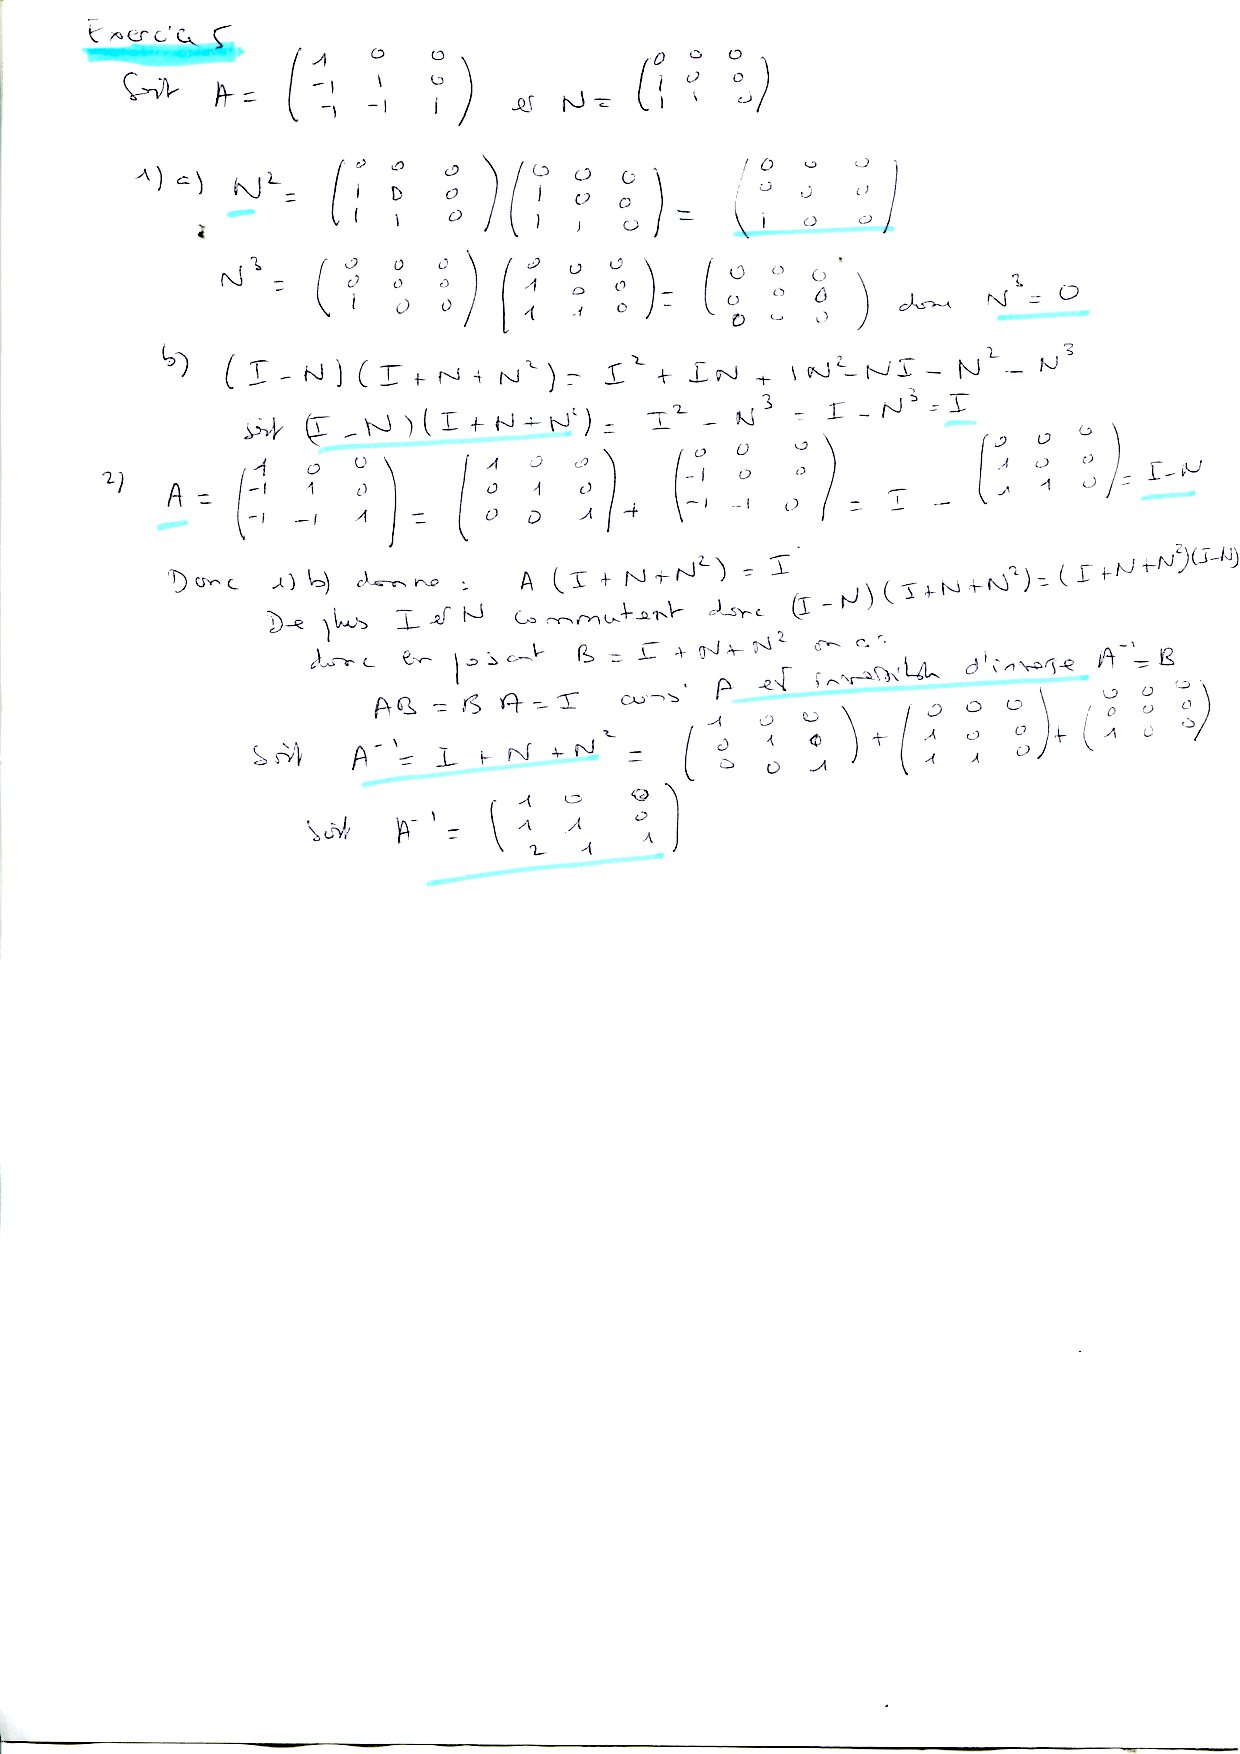 Exercice 5
Soit A = \begin{pmatrix} 1 & 0 & 0 \\ -1 & 1 & 0 \\ -1 & -1 & 1 \end{pmatrix} et N = \begin{pmatrix} 0 & 0 & 0 \\ 1 & 0 & 0 \\ 1 & 1 & 0 \end{pmatrix}
1) a) N² = \begin{pmatrix} 0 & 0 & 0 \\ 1 & 0 & 0 \\ 1 & 1 & 0 \end{pmatrix} \begin{pmatrix} 0 & 0 & 0 \\ 1 & 0 & 0 \\ 1 & 1 & 0 \end{pmatrix} = \begin{pmatrix} 0 & 0 & 0 \\ 0 & 0 & 0 \\ 1 & 0 & 0 \end{pmatrix}
N³ = \begin{pmatrix} 0 & 0 & 0 \\ 0 & 0 & 0 \\ 1 & 0 & 0 \end{pmatrix} \begin{pmatrix} 0 & 0 & 0 \\ 1 & 0 & 0 \\ 1 & 1 & 0 \end{pmatrix} = \begin{pmatrix} 0 & 0 & 0 \\ 0 & 0 & 0 \\ 0 & 0 & 0 \end{pmatrix} donc N³ = 0
b) (I - N) (I + N + N²) = I² + IN + IN² - NI - N² - N³
soit (I - N) (I + N + N²) = I² - N³ = I - N³ = I
2) A = \begin{pmatrix} 1 & 0 & 0 \\ -1 & 1 & 0 \\ -1 & -1 & 1 \end{pmatrix} = \begin{pmatrix} 1 & 0 & 0 \\ 0 & 1 & 0 \\ 0 & 0 & 1 \end{pmatrix} + \begin{pmatrix} 0 & 0 & 0 \\ -1 & 0 & 0 \\ -1 & -1 & 0 \end{pmatrix} = I - \begin{pmatrix} 0 & 0 & 0 \\ 1 & 0 & 0 \\ 1 & 1 & 0 \end{pmatrix} = I - N
Donc 1) b) donne : A (I + N + N²) = I
De plus I et N commutent donc (I - N) (I + N + N²) = (I + N + N²)(I - N)
donc en posant B = I + N + N² on a :
AB = BA = I ainsi A est inversible d'inverse A⁻¹ = B
Soit A⁻¹ = I + N + N² = \begin{pmatrix} 1 & 0 & 0 \\ 0 & 1 & 0 \\ 0 & 0 & 1 \end{pmatrix} + \begin{pmatrix} 0 & 0 & 0 \\ 1 & 0 & 0 \\ 1 & 1 & 0 \end{pmatrix} + \begin{pmatrix} 0 & 0 & 0 \\ 0 & 0 & 0 \\ 1 & 0 & 0 \end{pmatrix}
Soit A⁻¹ = \begin{pmatrix} 1 & 0 & 0 \\ 1 & 1 & 0 \\ 2 & 1 & 1 \end{pmatrix}